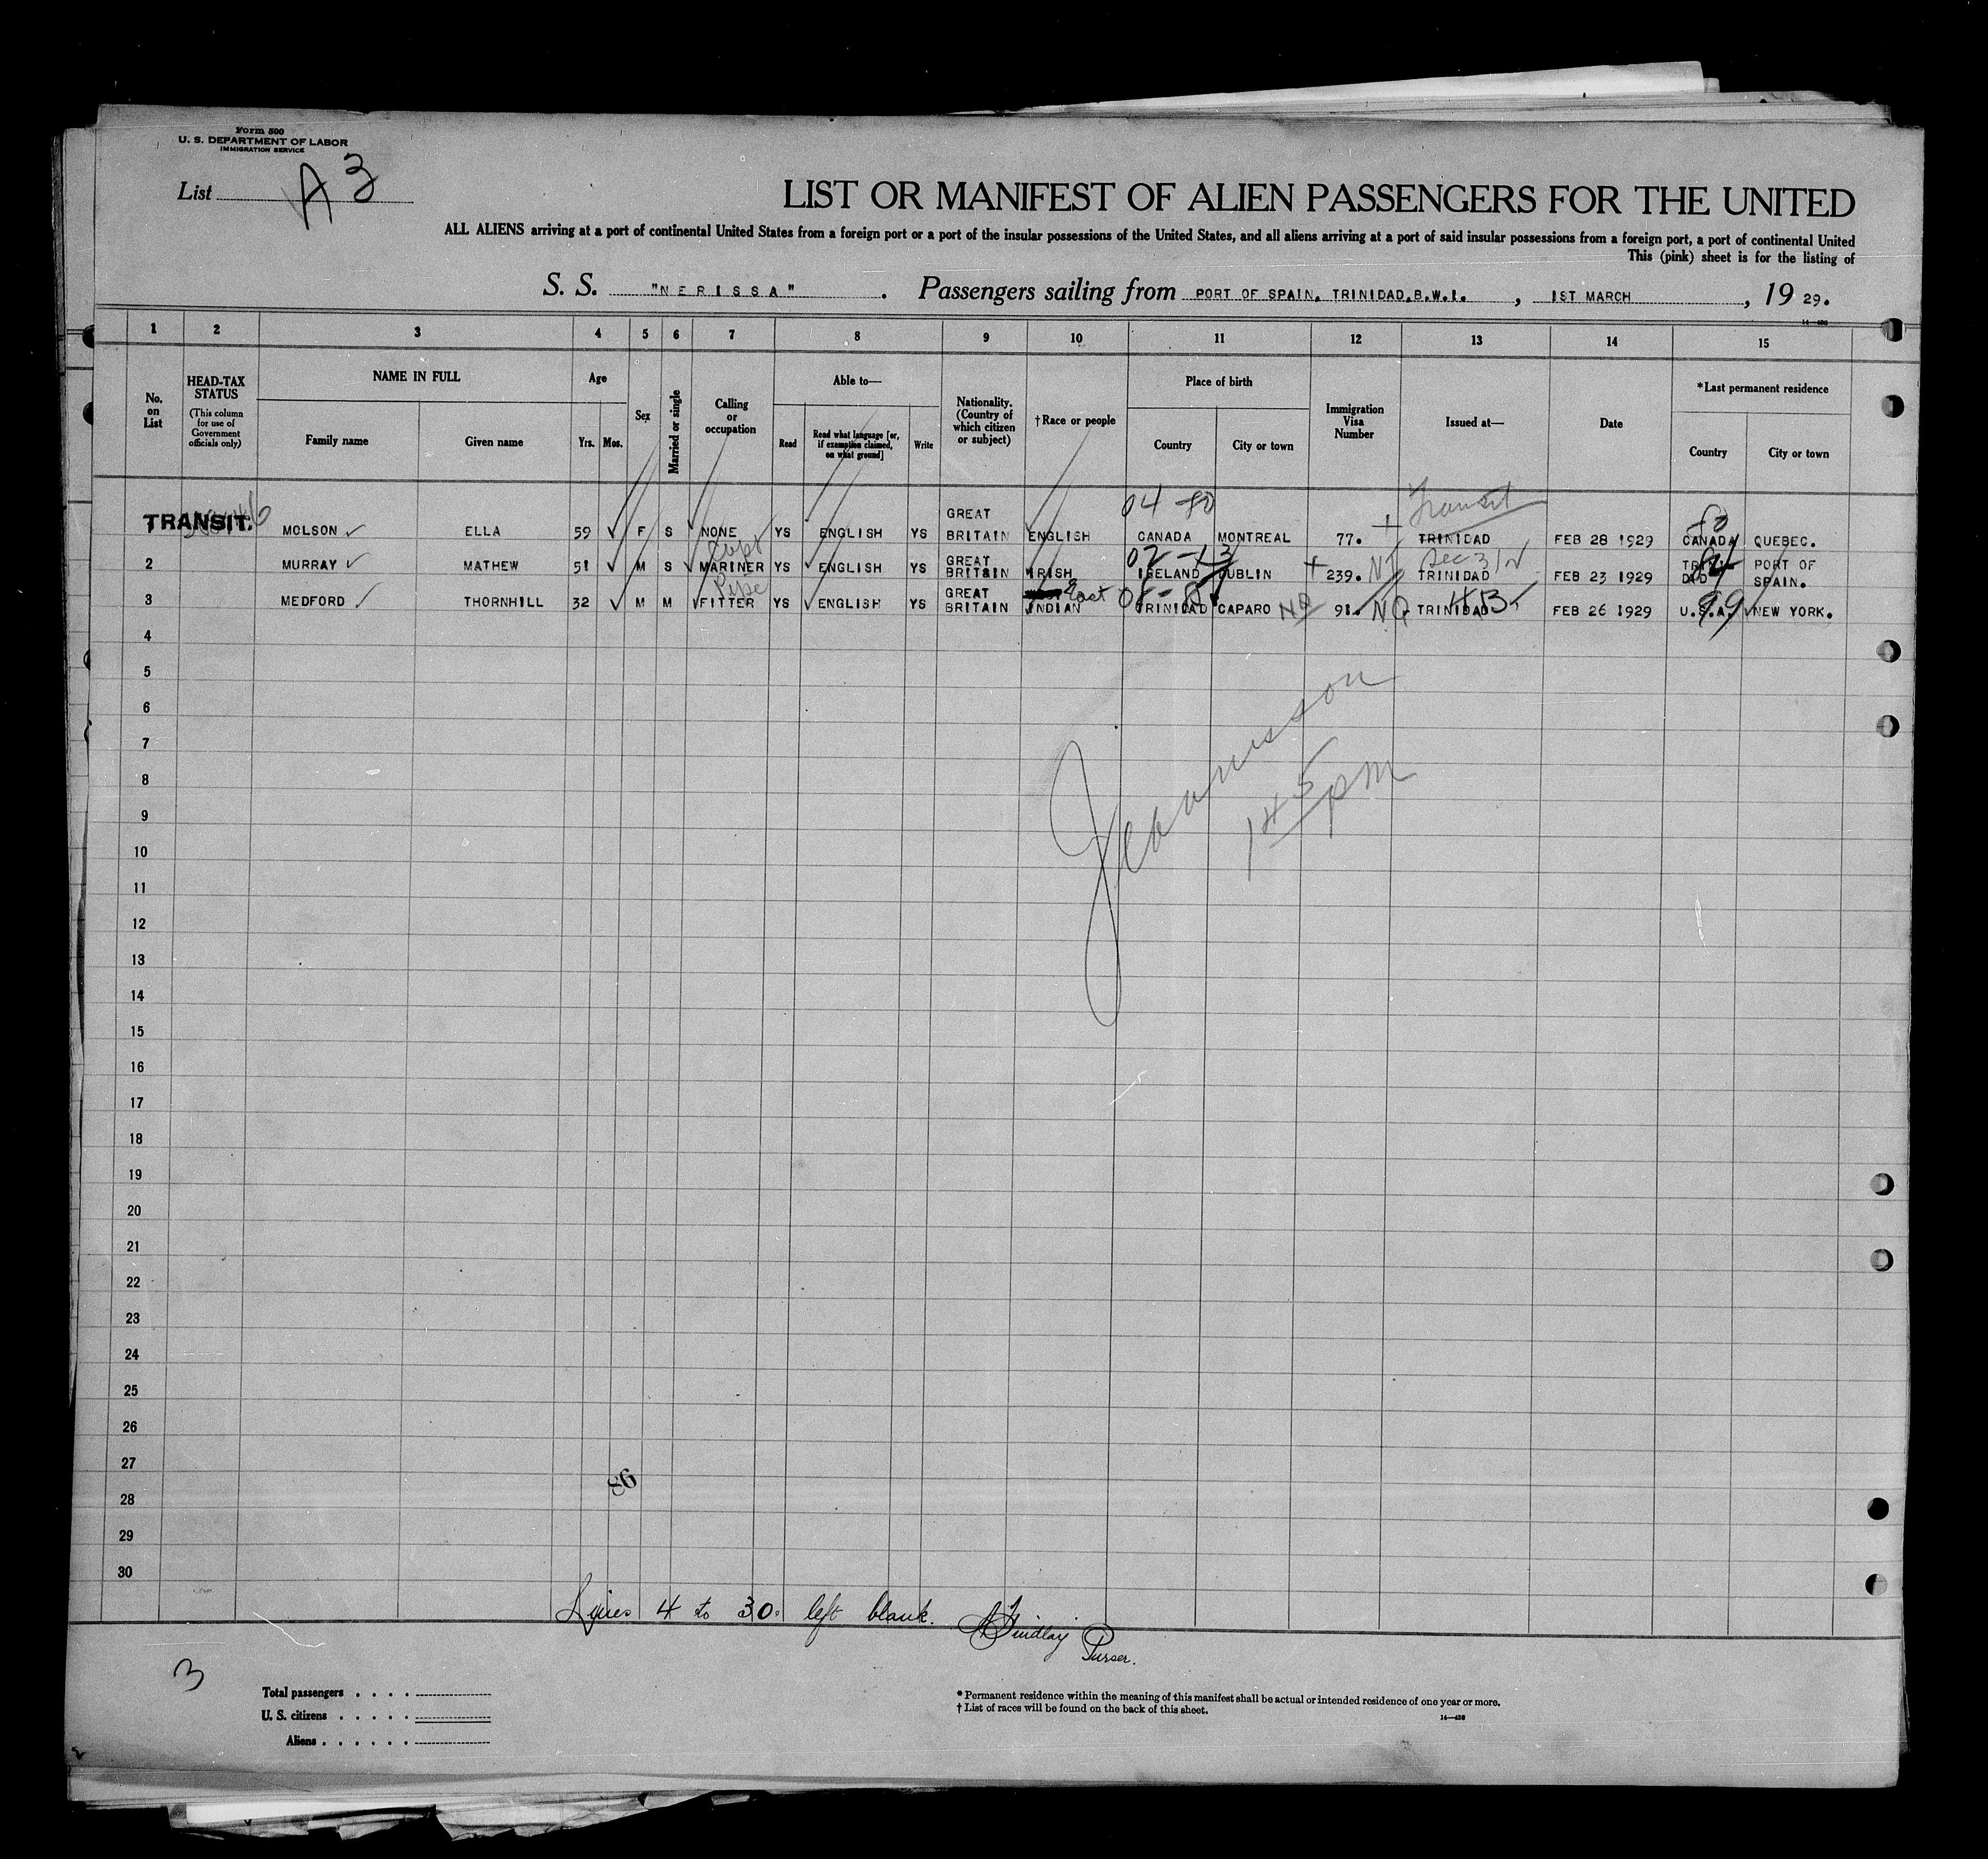 Form 500
U. S. DEPARTMENT OF LABOR
IMMIGRATION SERVICE
List A3
LIST OR MANIFEST OF ALIEN PASSENGERS FOR THE UNITED
ALL ALIENS arriving at a port of continental United States from a foreign port or a port of the insular possessions of the United States, and all aliens arriving at a port of said insular possessions from a foreign port, a port of continental United
This (pink) sheet is for the listing of
S. S. "NERISSA". Passengers sailing from PORT OF SPAIN, TRINIDAD, B.W.I. , 1ST MARCH , 19 29.
14—430
1 2 3 4 5 6 7 8 9 10 11 12 13 14 15
No. on List
HEAD-TAX STATUS (This column for use of Government officials only)
NAME IN FULL
Family name Given name
Age
Yrs. Mos.
Sex
Married or single
Calling or occupation
Able to—
Read Read what language [or, if exemption claimed, on what ground] Write
Nationality. (Country of which citizen or subject)
†Race or people
Place of birth
Country City or town
Immigration Visa Number
Issued at—
Date
*Last permanent residence
Country City or town
04 - 80 Transit
TRANSIT. MOLSON ELLA 59 F S NONE YS ENGLISH YS GREAT BRITAIN ENGLISH CANADA MONTREAL 77. TRINIDAD FEB 28 1929 CANADA QUEBEC.
02 - 13 Sec 3/2
2 MURRAY MATHEW 51 M S MARINER YS ENGLISH YS GREAT BRITAIN IRISH IRELAND DUBLIN 239. TRINIDAD FEB 23 1929 PORT OF SPAIN.
Pipe East
3 MEDFORD THORNHILL 32 M M FITTER YS ENGLISH YS GREAT BRITAIN INDIAN TRINIDAD CAPARO NQ 91. NQ TRINIDAD 4B FEB 26 1929 U.S.A. 99 NEW YORK.
4
5
6
7
8
9
10
11
12
13
14
15
16
17
18
19
20
21
22
23
24
25
26
27
28
29
30
145 pm
86
Lines 4 to 30 left blank. Findlay
Purser.
3
Total passengers
U. S. citizens
Aliens
*Permanent residence within the meaning of this manifest shall be actual or intended residence of one year or more.
†List of races will be found on the back of this sheet.
14—430